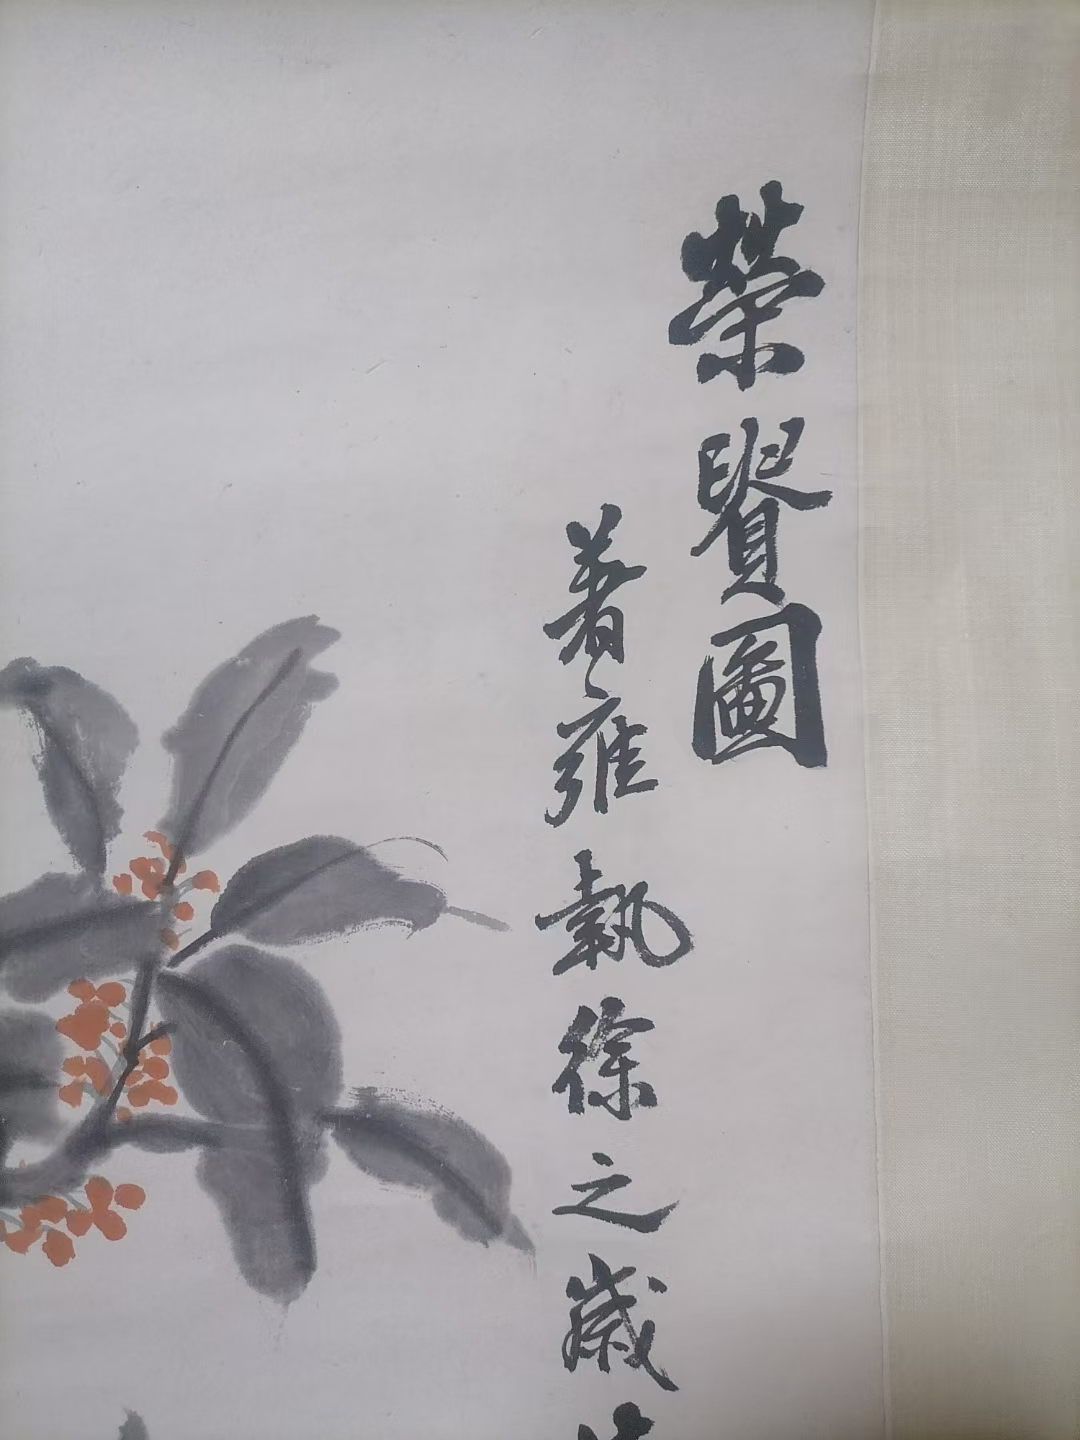 榮賢圖
著雍執徐之歲